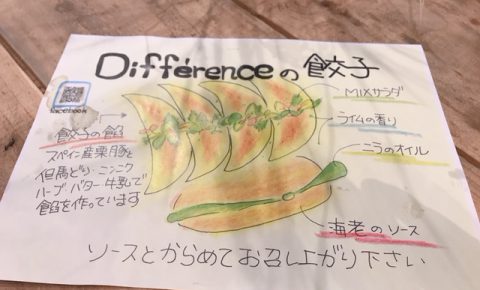 Différenceの餃子
facebook
MIXサラダ
ライムの香り
ニラのオイル
餃子の餡
スペイン産栗豚と
但馬どり・ニンニク
ハーブ、バター、牛乳で
餡を作っています
海老のソース
ソースとからめてお召し上がり下さい